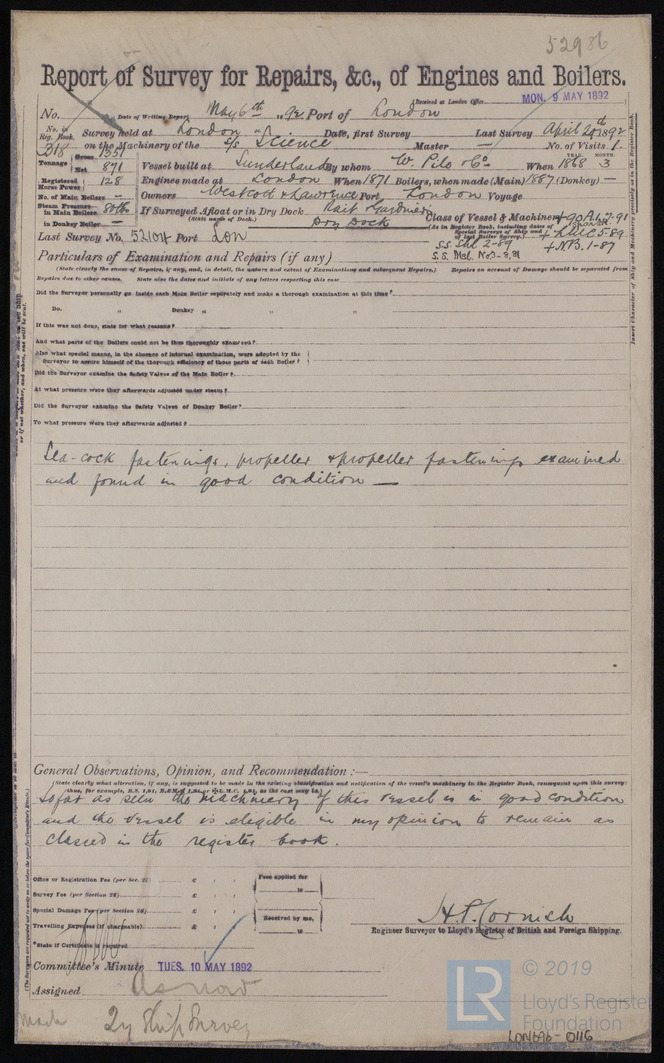 52986
Report of Survey for Repairs, &c., of Engines and Boilers.
(Received at London Office MON. 9 MAY 1892
No. Date of Writing Report May 6th 92 Port of London
No. in Reg. Book. Survey held at London Date, first Survey Last Survey April 29th 1892
318 on the Machinery of the S/s Science Master — No. of Visits 1
Tonnage Gross 1351 Net 871 Vessel built at Sunderland By whom W. Pile & Co. When YEAR. 1868 MONTH. 3
Registered Horse Power 128 Engines made at London When 1871 Boilers, when made (Main) 1887 (Donkey) —
No. of Main Boilers – Owners Westcott & Lawrence Port London Voyage
Steam Pressure in Main Boilers 80 lb If Surveyed Afloat or in Dry Dock Rait & Gardiner Class of Vessel & Machinery
in Donkey Boiler — (State name of Dock.) Dry Dock (As in Register Book, including dates of Special Surveys of Ship and of last Boiler Survey.) + LMC 5.89
Last Survey No. 52104 Port Lon + N.B. 1-87
Particulars of Examination and Repairs (if any)
(State clearly the cause of Repairs, if any, and, in detail, the nature and extent of Examinations and subsequent Repairs.) Repairs on account of Damage should be separated from
Repairs due to other causes. State also the dates and initials of any letters respecting this case
Did the Surveyor personally go inside each Main Boiler separately and make a thorough examination at this time?
Do. „ Donkey „ „ „
If this was not done, state for what reasons?
And what parts of the Boilers could not be thus thoroughly examined?
Also what special means, in the absence of internal examination, were adopted by the
Surveyor to assure himself of the thorough efficiency of those parts of each Boiler?
Did the Surveyor examine the Safety Valves of the Main Boiler?
At what pressure were they afterwards adjusted under steam?
Did the Surveyor examine the Safety Valves of Donkey Boiler?
To what pressure were they afterwards adjusted?
Sea-cock fastenings, propeller & propeller fastenings examined
and found in good condition —
General Observations, Opinion, and Recommendation:—
(State clearly what alteration, if any, is suggested to be made in the existing classification and notification of the vessel's machinery in the Register Book, consequent upon this survey;
So far as seen the machinery of this vessel is in good condition
and the vessel is elegible in my opinion to remain as
classed in the register book.
Office or Registration Fee (per Sec. 28) £ : : Fees applied for
Survey Fee (per Section 28) £ : : 18
Special Damage Fee (per Section 28) £ : : Received by me,
Travelling Expenses (if chargeable) £ : : 18
*State if Certificate is required
H. P. Cornish
Engineer Surveyor to Lloyd's Register of British and Foreign Shipping.
Committee's Minute TUES. 10 MAY 1892
Assigned As now
2y Ship Survey
LR © 2019
Lloyd's Register
Foundation
LON646-0116